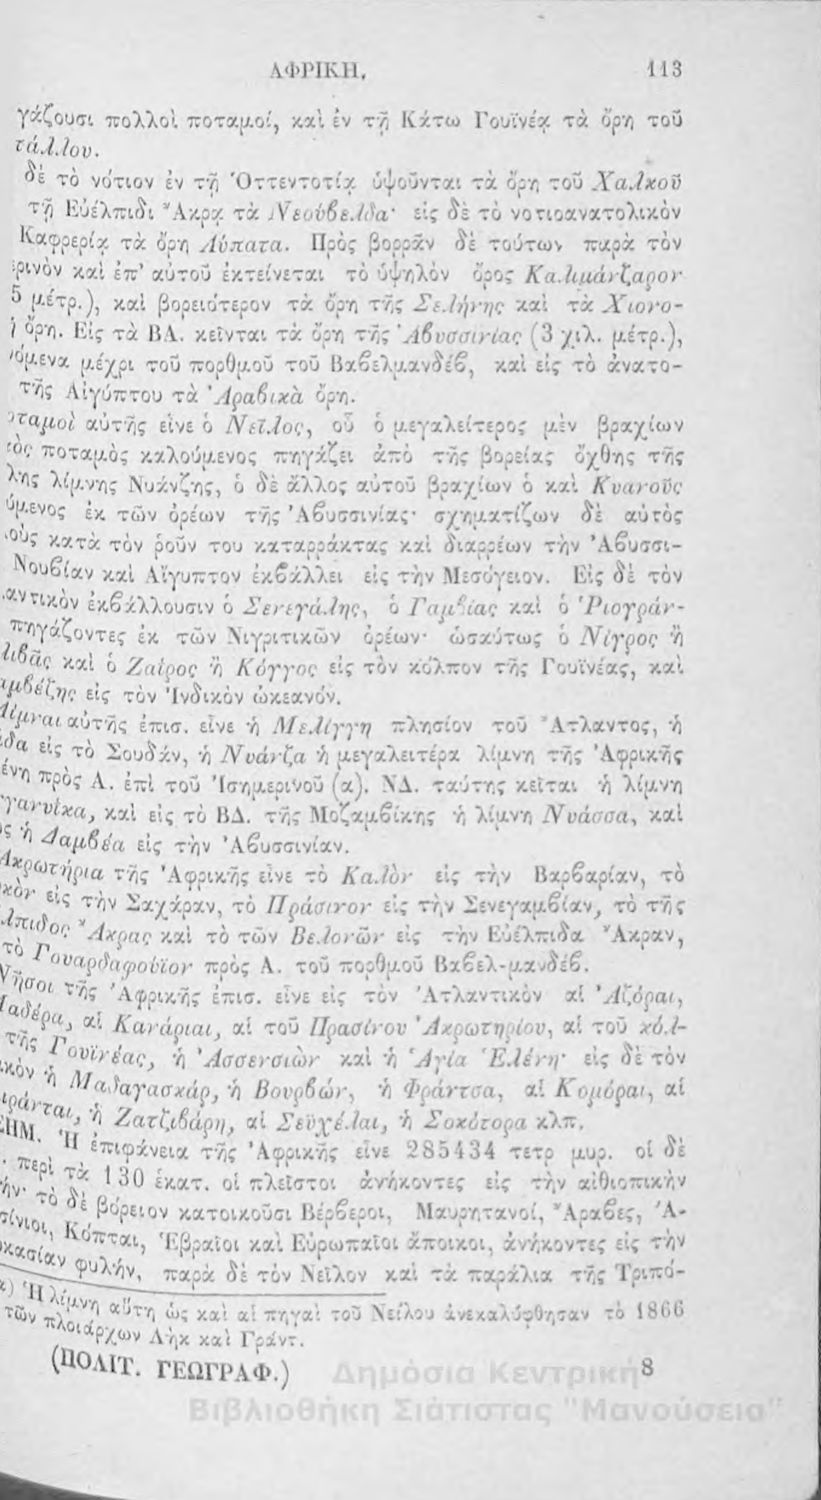 ΑΦΡΙΚΗ. 113
γάζουσι πολλοὶ ποταμοί, καὶ ἐν τῇ Κάτω Γουϊνέᾳ τὰ ὄρη τοῦ
τάλλου.
δὲ τὸ νότιον ἐν τῇ Ὁττεντοτίᾳ ὑψοῦνται τὰ ὄρη τοῦ Χαλκοῦ
τῇ Εὐέλπιδι Ἄκρᾳ τὰ Νεούβελδα· εἰς δὲ τὸ νοτιοανατολικὸν
Καφρερίᾳ τὰ ὄρη Λύπατα. Πρὸς βορρᾶν δὲ τούτων παρὰ τὸν
ρινὸν καὶ ἐπ' αὐτοῦ ἐκτείνεται τὸ ὑψηλὸν ὄρος Καλιμάνζαρον
5 μέτρ.), καὶ βορειότερον τὰ ὄρη τῆς Σελήνης καὶ τὰ Χιονο-
ὄρη. Εἰς τὰ ΒΑ. κεῖνται τὰ ὄρη τῆς Ἀβυσσινίας (3 χιλ. μέτρ.),
όμενα μέχρι τοῦ πορθμοῦ τοῦ Βαβελμανδέβ, καὶ εἰς τὸ ἀνατο-
τῆς Αἰγύπτου τὰ Ἀραβικὰ ὄρη.
οταμοὶ αὐτῆς εἶνε ὁ Νεῖλος, οὗ ὁ μεγαλείτερος μὲν βραχίων
ποταμὸς καλούμενος πηγάζει ἀπὸ τῆς βορείας ὄχθης τῆς
λης λίμνης Νυάνζης, ὁ δὲ ἄλλος αὐτοῦ βραχίων ὁ καὶ Κυανοῦς
ύμενος ἐκ τῶν ὀρέων τῆς Ἀβυσσινίας· σχηματίζων δὲ αὐτὸς
οὺς κατὰ τὸν ῥοῦν του καταρράκτας καὶ διαρρέων τὴν Ἀβυσσι-
Νουβίαν καὶ Αἴγυπτον ἐκβάλλει εἰς τὴν Μεσόγειον. Εἰς δὲ τὸν
αντικὸν ἐκβάλλουσιν ὁ Σενεγάλης, ὁ Γαμβίας καὶ ὁ Ῥιογράν-
πηγάζοντες ἐκ τῶν Νιγριτικῶν ὀρέων· ὡσαύτως ὁ Νίγρος ἢ
λιβᾶς καὶ ὁ Ζαΐρος ἢ Κόγγος εἰς τὸν κόλπον τῆς Γουϊνέας, καὶ
αμβέζης εἰς τὸν Ἰνδικὸν ὠκεανόν.
Λίμναι αὐτῆς ἐπισ. εἶνε ἡ Μελίγγη πλησίον τοῦ Ἄτλαντος, ἡ
δα εἰς τὸ Σουδάν, ἡ Νυάνζα ἡ μεγαλειτέρα λίμνη τῆς Ἀφρικῆς
ένη πρὸς Α. ἐπὶ τοῦ Ἰσημερινοῦ (α). ΝΔ. ταύτης κεῖται ἡ λίμνη
γανυίκα, καὶ εἰς τὸ ΒΔ. τῆς Μοζαμβίκης ἡ λίμνη Νυάσσα, καὶ
ς ἡ Δαμβέα εἰς τὴν Ἀβυσσινίαν.
Ἀκρωτήρια τῆς Ἀφρικῆς εἶνε τὸ Καλὸν εἰς τὴν Βαρβαρίαν, τὸ
κὸν εἰς τὴν Σαχάραν, τὸ Πράσινον εἰς τὴν Σενεγαμβίαν, τὸ τῆς
λπιδος Ἄκρας καὶ τὸ τῶν Βελονῶν εἰς τὴν Εὐέλπιδα Ἄκραν,
τὸ Γουαρδαφούϊον πρὸς Α. τοῦ πορθμοῦ Βαβελ-μανδέβ.
Νῆσοι τῆς Ἀφρικῆς ἐπισ. εἶνε εἰς τὸν Ἀτλαντικὸν αἱ Ἀζόραι,
Μαδέρα, αἱ Κανάριαι, αἱ τοῦ Πρασίνου Ἀκρωτηρίου, αἱ τοῦ κόλ-
τῆς Γουϊνέας, ἡ Ἀσσενσιὼν καὶ ἡ Ἁγία Ἑλένη· εἰς δὲ τὸν
κὸν ἡ Μαδαγασκάρ, ἡ Βουρβών, ἡ Φράντσα, αἱ Κομόραι, αἱ
ιράνται, ἡ Ζατζιβάρη, αἱ Σεϋχέλαι, ἡ Σοκότορα κλπ.
ΣΗΜ. Ἡ ἐπιφάνεια τῆς Ἀφρικῆς εἶνε 285434 τετρ μυρ. οἱ δὲ
περὶ τὰ 130 ἑκατ. οἱ πλεῖστοι ἀνήκοντες εἰς τὴν αἰθιοπικὴν
ήν· τὸ δὲ βόρειον κατοικοῦσι Βέρβεροι, Μαυρητανοί, Ἄραβες, Ἀ-
σίνιοι, Κόπται, Ἑβραῖοι καὶ Εὐρωπαῖοι ἄποικοι, ἀνήκοντες εἰς τὴν
κασίαν φυλήν, παρὰ δὲ τὸν Νεῖλον καὶ τὰ παράλια τῆς Τριπό-
α) Ἡ λίμνη αὕτη ὡς καὶ αἱ πηγαὶ τοῦ Νείλου ἀνεκαλύφθησαν τὸ 1866
τῶν πλοιάρχων Λὴκ καὶ Γράντ.
(ΠΟΛΙΤ. ΓΕΩΓΡΑΦ.) 8
Δημόσια Κεντρική
Βιβλιοθήκη Σιάτιστας "Μανούσεια"